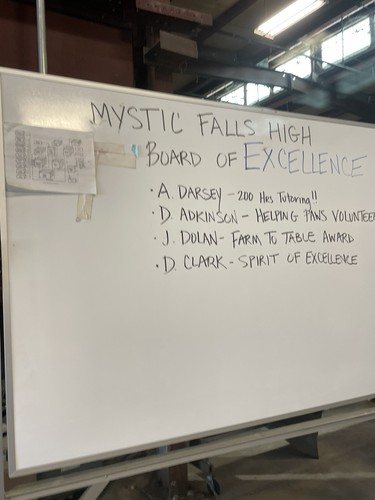 MYSTIC FALLS HIGH
BOARD OF EXCELLENCE
• A. DARSEY - 200 HRS TUTORING!!
• D. ADKINSON - HELPING PAWS VOLUNTEER
• J. DOLAN - FARM TO TABLE AWARD
• D. CLARK - SPIRIT OF EXCELLENCE